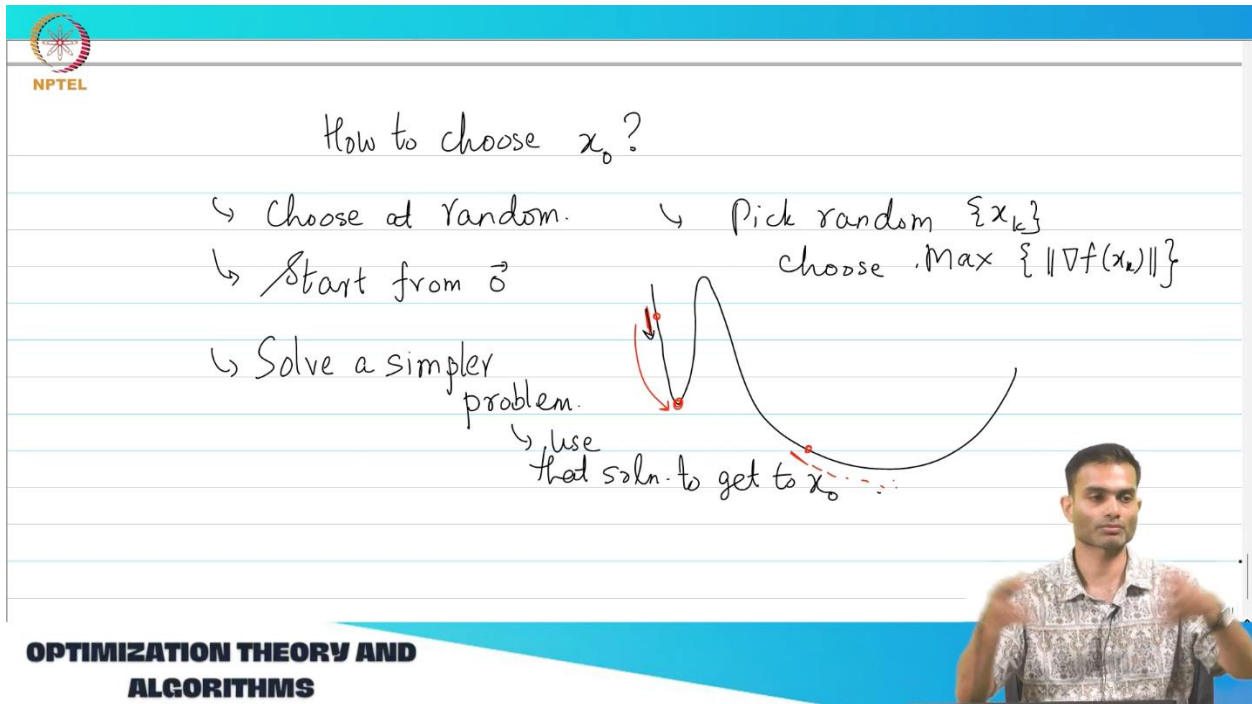 NPTEL
How to choose x₀?
↳ Choose at random.
↳ Start from 0⃗
↳ Solve a simpler
problem.
↳ use
that soln. to get to x₀
↳ Pick random {xₖ}
choose Max {‖∇f(xₖ)‖}
OPTIMIZATION THEORY AND
ALGORITHMS